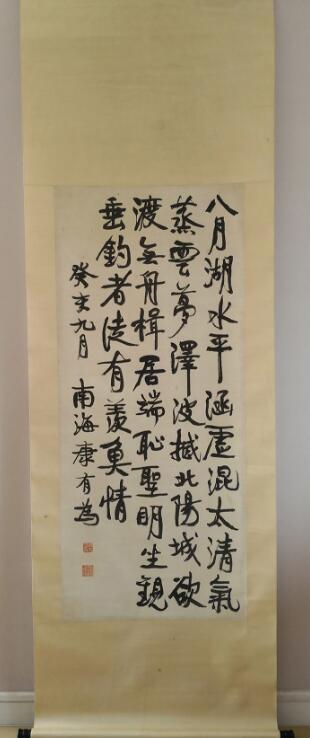 八月湖水平涵虛混太清氣
蒸雲夢澤波撼北陽城欲
渡無舟楫居端恥聖明坐觀
垂釣者徒有羨魚情
癸亥九月 南海康有為